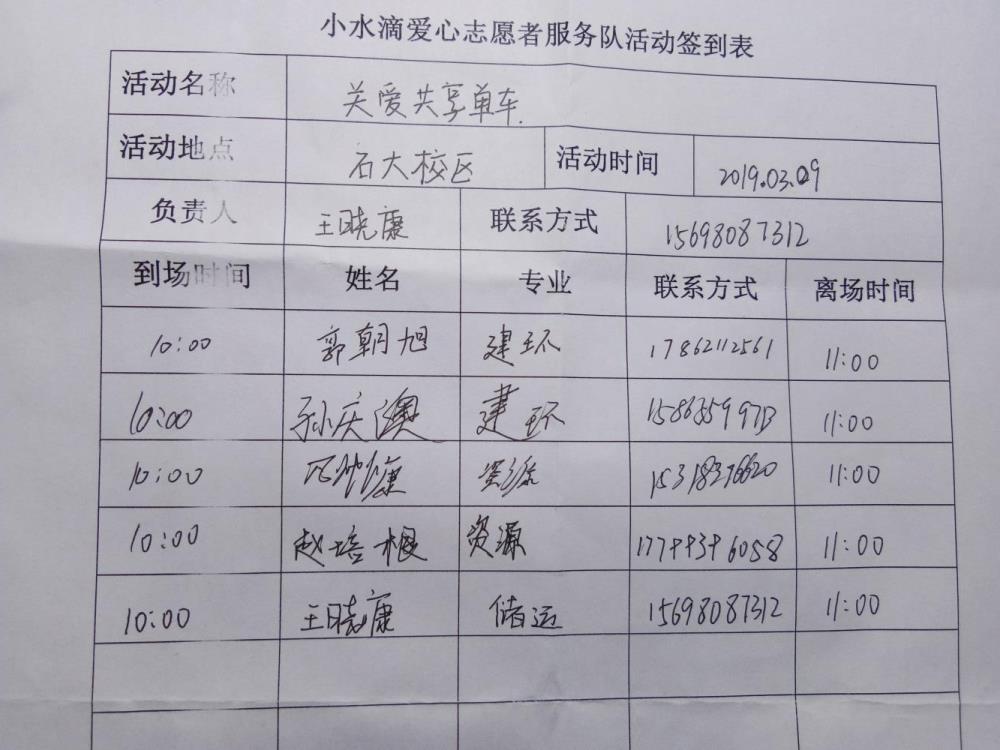 小水滴爱心志愿者服务队活动签到表
活动名称 关爱共享单车.
活动地点 石大校区 活动时间 2019.03.09
负责人 王晓康 联系方式 15698087312
到场时间 姓名 专业 联系方式 离场时间
10:00 郭朝旭 建环 17862112561 11:00
10:00 孙庆澳 建环 11:00
10:00 15318376620 11:00
10:00 赵培根 资源 11:00
10:00 王晓康 储运 15698087312 11:00